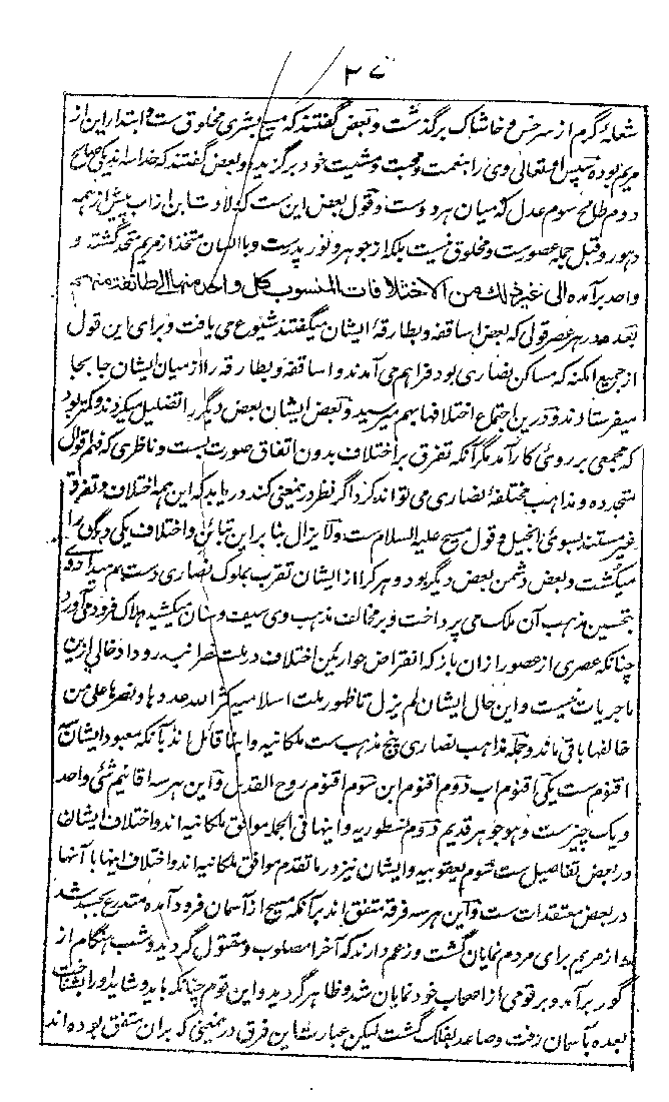 ٢٧
شعلهٔ گرم از سر خس و خاشاک برگذشت و بعض گفتند که مسیح بشری مخلوق ست و ابتدار این از
مریم بوده سپس او تعالی وی را بنعمت و محبت و مشیت خود برگزیده و بعض گفتند که خدا سه اند یکی صالح
دوم طالح سوم عدل که میان هر دوست و قول بعض این ست که ولادت ابن از اب پیش از همه
دهور و قبل جمله عصورست و مخلوق نیست بلکه از جوهر و نور پدرست و با انسان متخذ از مریم متحد گشته و
واحد برآمده الی غیر ذلك من الاختلافات المنسوب كل واحد منها الی طائفة منهم
بعده در هر عصر قولی که بعض اساقفه و بطارقهٔ ایشان میگفتند شیوع می یافت و برای این قول
از جمیع امکنه که مساکن نصاری بود فراهم می آمدند و اساقفه و بطارقه را از میان ایشان جا بجا
میفرستادند و درین اجتماع اختلافها بهم میرسید و بعض ایشان بعض دیگر را تضلیل میکردند و کمتر بود
که مجمعی بر روی کار آمد مگر آنکه تفرق بر اختلاف بدون اتفاق صورت بست و ناظری که فهم اقوال
متجدده و مذاهب مختلفهٔ نصاری می تواند کرد اگر نظر در معنی کند دریابد که این همه اختلاف و تفرق
غیر مستند بسوی انجیل و قول مسیح علیه السلام ست و لایزال بنا بر این تباین و اختلاف یکی دیگری را
میکشت و بعض دشمن بعض دیگر بود و هر کرا از ایشان تقرب بملوک نصاری دست بهم میداد وی
بتحسین مذهب آن ملک می پرداخت و بر مخالف مذهب وی سیف و سنان میکشید و هلاک فرود می آورد
چنانکه عصری از عصور ازان باز که انقراض حواریین و اختلاف در ملت نصرانیه رو داد خالی ازین
ماجریات نیست و این حال ایشان لم یزل تا ظهور ملت اسلامیه كثر الله عددها و نصرها علی من
خالفها باقی ماند و جمله مذاهب نصاری پنج مذهب ست ملکانیه و اینها قائل اند بآنکه معبود ایشان سه
اقنوم ست یکی اقنوم اب دوم اقنوم ابن سوم اقنوم روح القدس و این هر سه اقانیم شئ واحد
و یک چیز ست و هو جوهر قدیم دوم نسطوریه و اینها فی الجمله موافق ملکانیه اند و اختلاف ایشان
در بعض تفاصیل ست سوم یعقوبیه و ایشان نیز در ما تقدم موافق ملکانیه اند و اختلاف اینها با آنها
در بعض معتقدات ست و این هر سه فرقه متفق اند بر آنکه مسیح از آسمان فرود آمده متدرع بجسد شد
و از مریم برای مردم نمایان گشت و زعم دارند که آخر مصلوب و مقتول گردید و شب هنگام از
گور برآمد و بر قومی از اصحاب خود نمایان شد و ظاهر گردید و این قوم چنانکه باید و شاید او را بشناخت
بعده بآسمان رفت و صاعد بفلک گشت لیکن عبارت این فرق در معنئی که بران متفق بوده اند